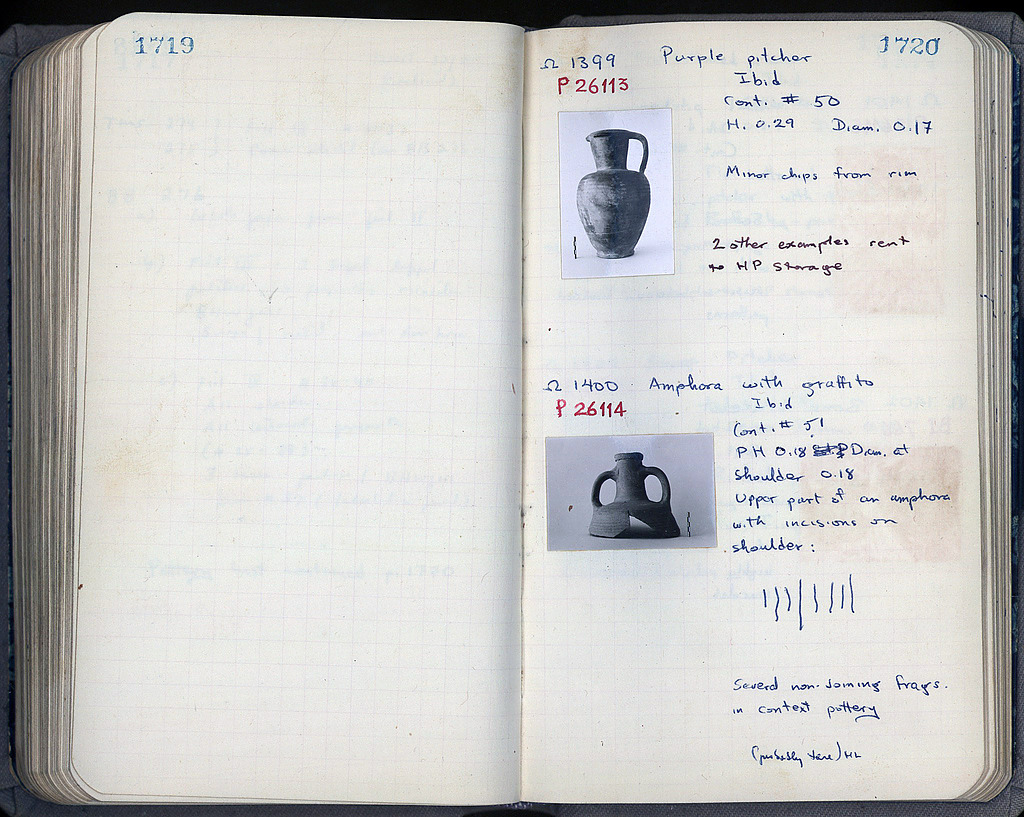 1719
1720
Ω 1399 Purple pitcher
P 26113
Ibid
Cont. # 50
H. 0.29 Diam. 0.17
Minor chips from rim
2 other examples sent
to HP Storage
Ω 1400 Amphora with graffito
P 26114
Ibid
Cont. # 51
PH 0.18 Diam. at
shoulder 0.18
Upper part of an amphora
with incisions on
shoulder:
Several non-joining frags.
in context pottery
(probably